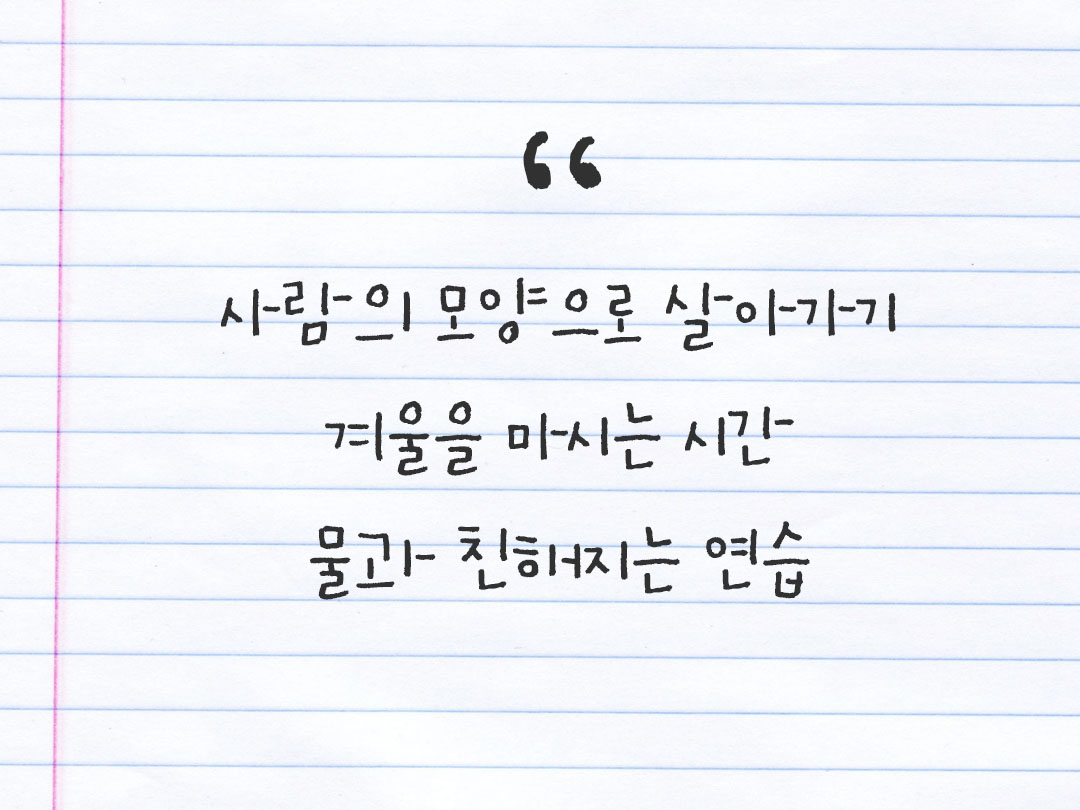 “
사람의 모양으로 살아가기
겨울을 마시는 시간
물과 친해지는 연습